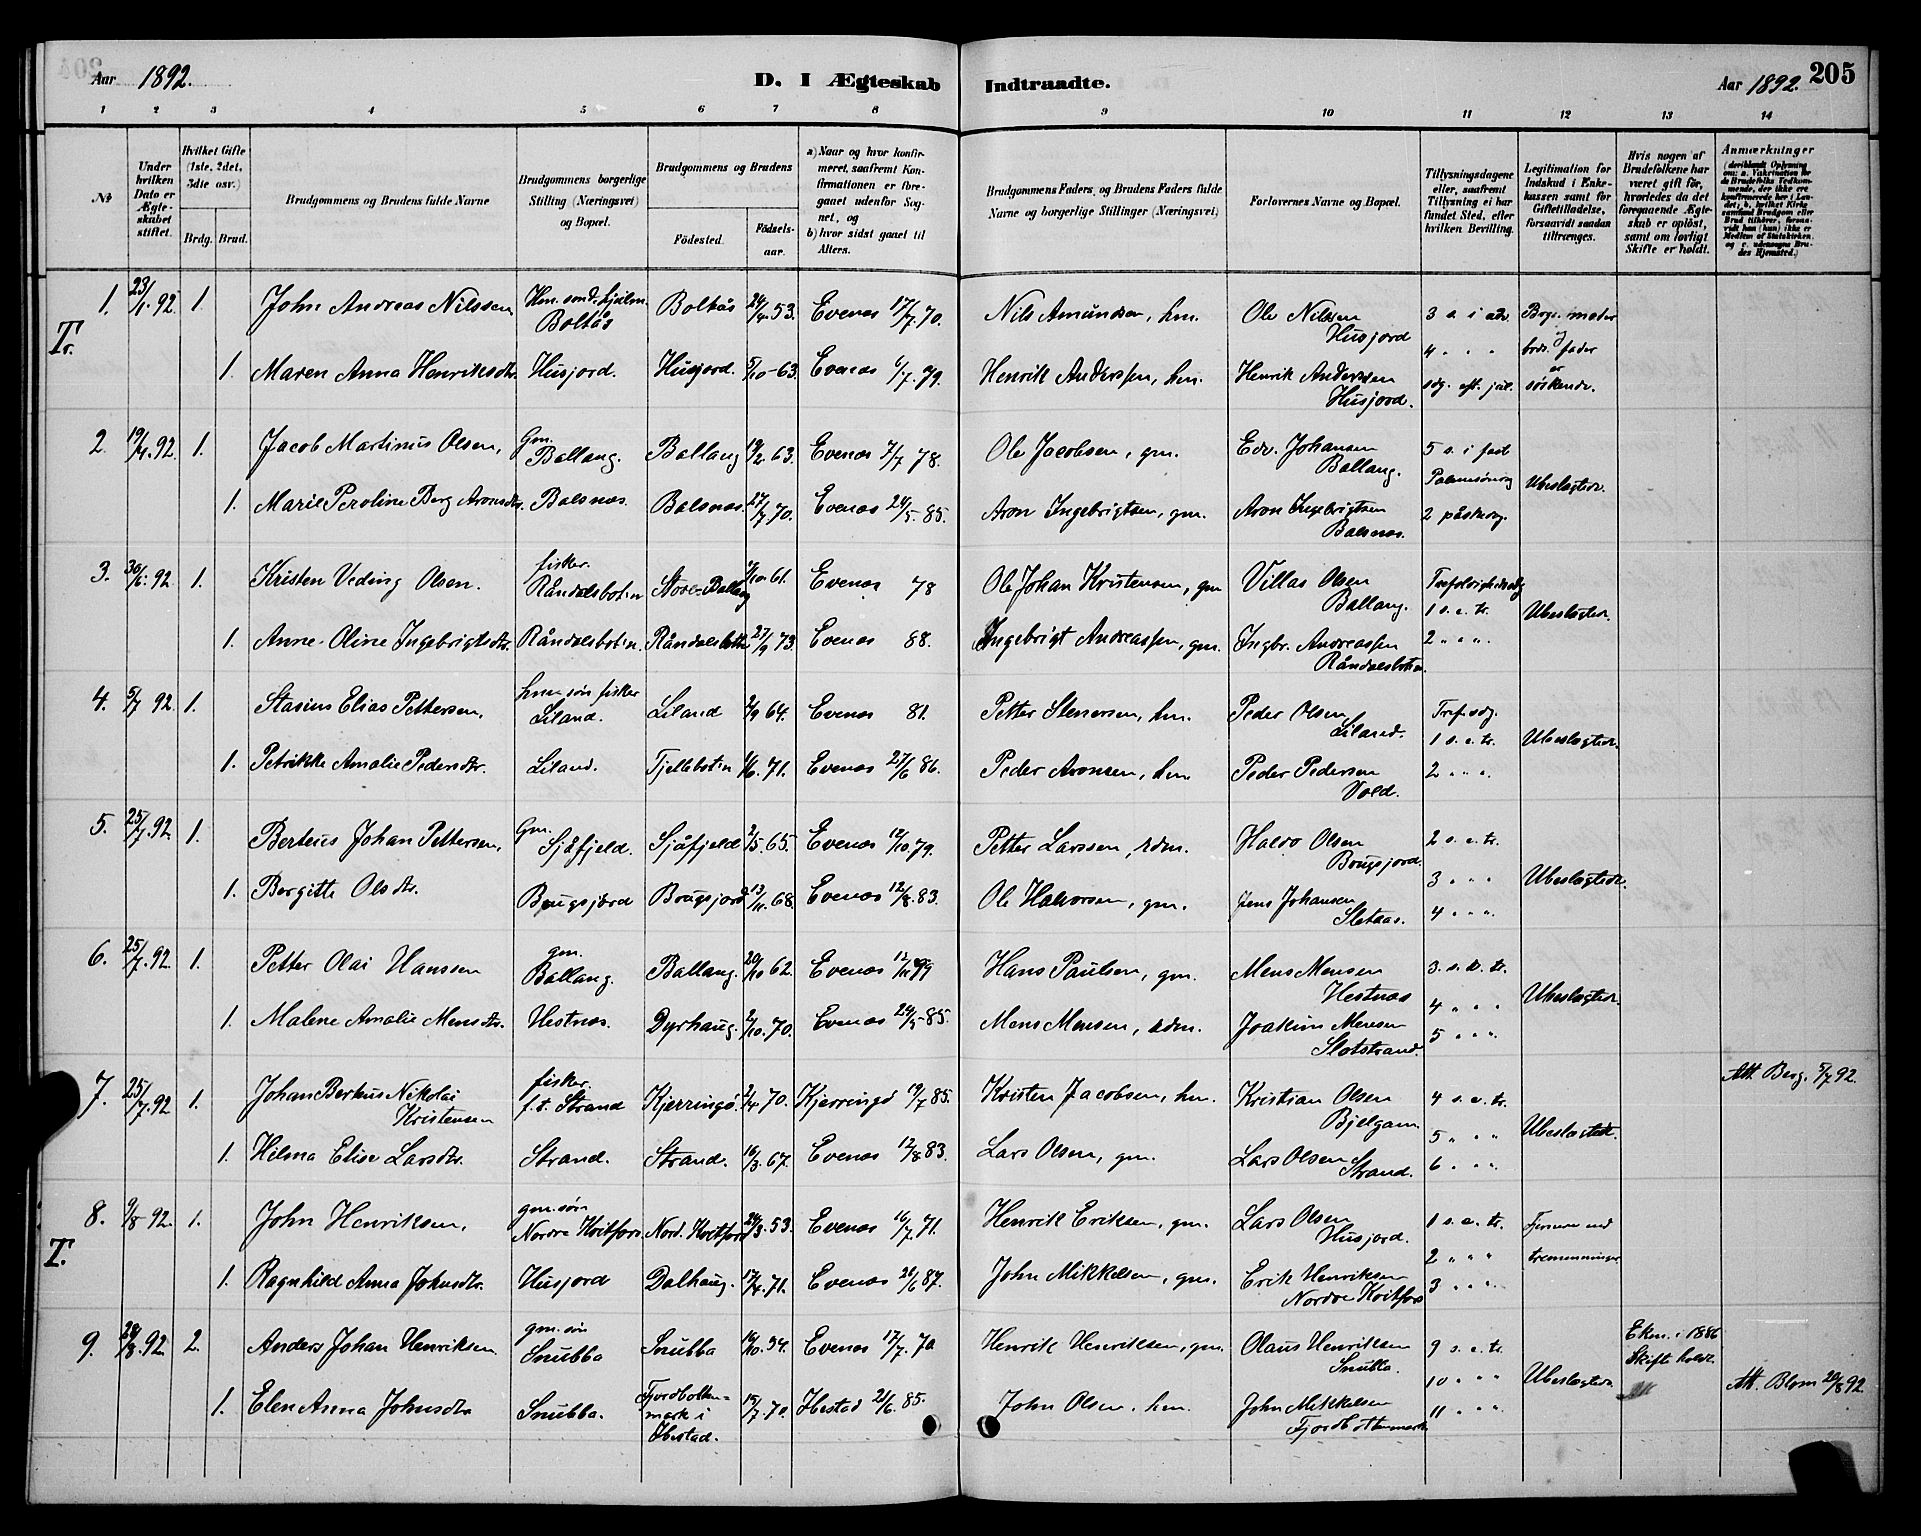 Aar 1892.
D. I Ægteskab Indtraadte.
Aar 1892. 205
1 2 3 4 5 6 7 8 9 10 11 12 13 14
No
Under hvilken Dato er Ægteskabet stiftet.
Hvilket Gifte (1ste, 2det, 3die osv.)
Brdg. Brud.
Brudgommens og Brudens fulde Navne
Brudgommens borgerlige Stilling (Næringsvei) og Bopæl.
Brudgommens og Brudens
Fødested.
Fødselsaar.
a) Naar og hvor konfirmeret, saafremt Konfirmationen er foregaaet udenfor Sognet, og
b) hvor sidst gaaet til Alters.
Brudgommens Faders, og Brudens Faders fulde Navne og borgerlige Stillinger (Næringsvei)
Forlovernes Navne og Bopæl.
Tillysningsdagene eller, saafremt Tillysning ei har fundet Sted, efter hvilken Bevilling.
Legitimation for Indskud i Enkekassen samt for Giftetilladelse, forsaavidt saadan tiltrænges.
Hvis nogen af Brudefolkene har været gift før, hvorledes da det foregaaende Ægteskab er opløst, samt om lovligt Skifte er holdt.
Anmærkninger
1. 23/1.92 1. John Andreas Nilssen Boltås Boltås 24/4 53. Evenes 17/7.70. Nils Amundsen, hm. Ole Nilssen Husjord 3 s. i adv. Brgs. moder
Tr. 4 " " og brds. fader
1. Maren Anna Henriksdtr. Husjord. Husjord. 5/10-63. Evenes 6/7.79. Henrik Anderssen, hm. Henrik Anderssen Husjord. sdg. eft. jul. er søskende.
2. 19/4.92. 1. Jacob Martinus Olsen, Gm. Ballang. Ballang 19/2 63. Evenes 7/7 78. Ole Jacobsen, gm. Edv. Johansen Ballang. 5 s. i fast
Palmesøndg Ubeslægtede.
1. Marie Peroline Berg Aronsdtr. Balsnes. Balsnes. 27/7.70. Evenes 24/5.85. Aron Ingebrigtsen, gm. Aron Ingebrigtsen Balsnes. 2 påskedg.
3. 30/6.92. 1. Kristen Veding Olsen. fisker. Råndalsbotn Store-Ballang 61. Evenes 78 Ole Johan Kristensen, gm Villas Olsen Ballang. Trefoldighedssdg
1 s. e. tr. Ubeslægtede.
1. Anne Oline Ingebrigtsdtr. Råndalsbotn. Råndalsbotn 27/9 73. Evenes 88. Ingebrigt Andreassen, gm. Ingbr. Andreassen Råndalsbotn. 2 " " "
4. 5/7 92. 1. Stasius Elias Pettersen, hmm søn fisker Liland. Liland 2/9 64. Evenes 81. Petter Stenersen, hm. Peder Olsen Liland. Tref. sdg.
1 s. e. tr. Ubeslægtede.
1. Petrikke Amalie Pedersdtr. Liland. Tjellebotn 1/6.71. Evenes 27/6 86. Peder Aronsen, hm Peder Pedersen Vold. 2 " " "
5. 25/7.92. 1. Berteus Johan Pettersen, Gm. Sjåfjeld. Sjåfjeld 2/5.65. Evenes 12/10.79. Petter Larssen, rdm. Haldo Olsen Brugsjord. 2 s. e. tr.
3 " " Ubeslægtede.
1. Bergitte Olsdtr. Brugsjord Brugsjord 13/11.68. Evenes 12/8.83. Ole Halvorsen, gm. Jens Johansen Sletaas. 4 " " "
6. 25/7.92. 1. Petter Olai Hanssen gm. Ballang. Ballang. 20/10 62. Evenes Hans Paulsen, gm. Mens Mensen Hestnes 3. s. e. tr.
4 " " Ubeslægtede.
1. Malene Amalie Mensdtr. Hestnes. Dyrhaug. 2/10.70. Evenes 24/5-85. Mens Mensen, rdm. Joakim Mensen Slotstrand. 5 " " "
7. 25/7.92 1. Johan Berteus Nikolai Kristensen fisker. f. t. Strand Kjerringø. 2/4.70. Kjerringø 19/7 85. Kristen Jacobsen, hm. Kristian Olsen Bjelgam 4 s. e. tr. Att. Berg. 5/7 92.
5 " " Ubeslægtede.
1. Hilma Elise Larsdtr. Strand. Strand. 16/3.67. Evenes 12/8.83. Lars Olsen, gm. Lars Olsen Strand. 6 " " "
8. 9/8 92. 1. John Henriksen, gm. søn Nordre Kvitfors Nord. Kvitfors 24/3.53. Evenes 16/7.71. Henrik Eriksen, gm. Lars Olsen Husjord. 1 s. e. tr. Fjernere end
T. 2 " " tremenninger
1. Ragnhild Anna Johnsdtr. Husjord Dalhaug. 17/4.71. Evenes 26/6 87. John Mikkelsen, gm. Erik Henriksen Nordre Kvitfors 3 " " "
9. 28/8.92 2. Anders Johan Henriksen. gm. søn Snubba Snubba 14/10.54. Evenes 17/7.70. Henrik Henriksen, gm. Olaus Henriksen Snubba 9 s. e. tr. Ekm. i 1886 Skifte holdt.
10 " " Ubeslægtede Att. Blom 20/8 92
1. Elen Anna Johnsdtr Snubba. Fjordbottenmark i Ibestad. 15/7.70. Ibestad 21/6.85. John Olsen. hm. John Mikkelsen Fjordbottenmark 11 " " "